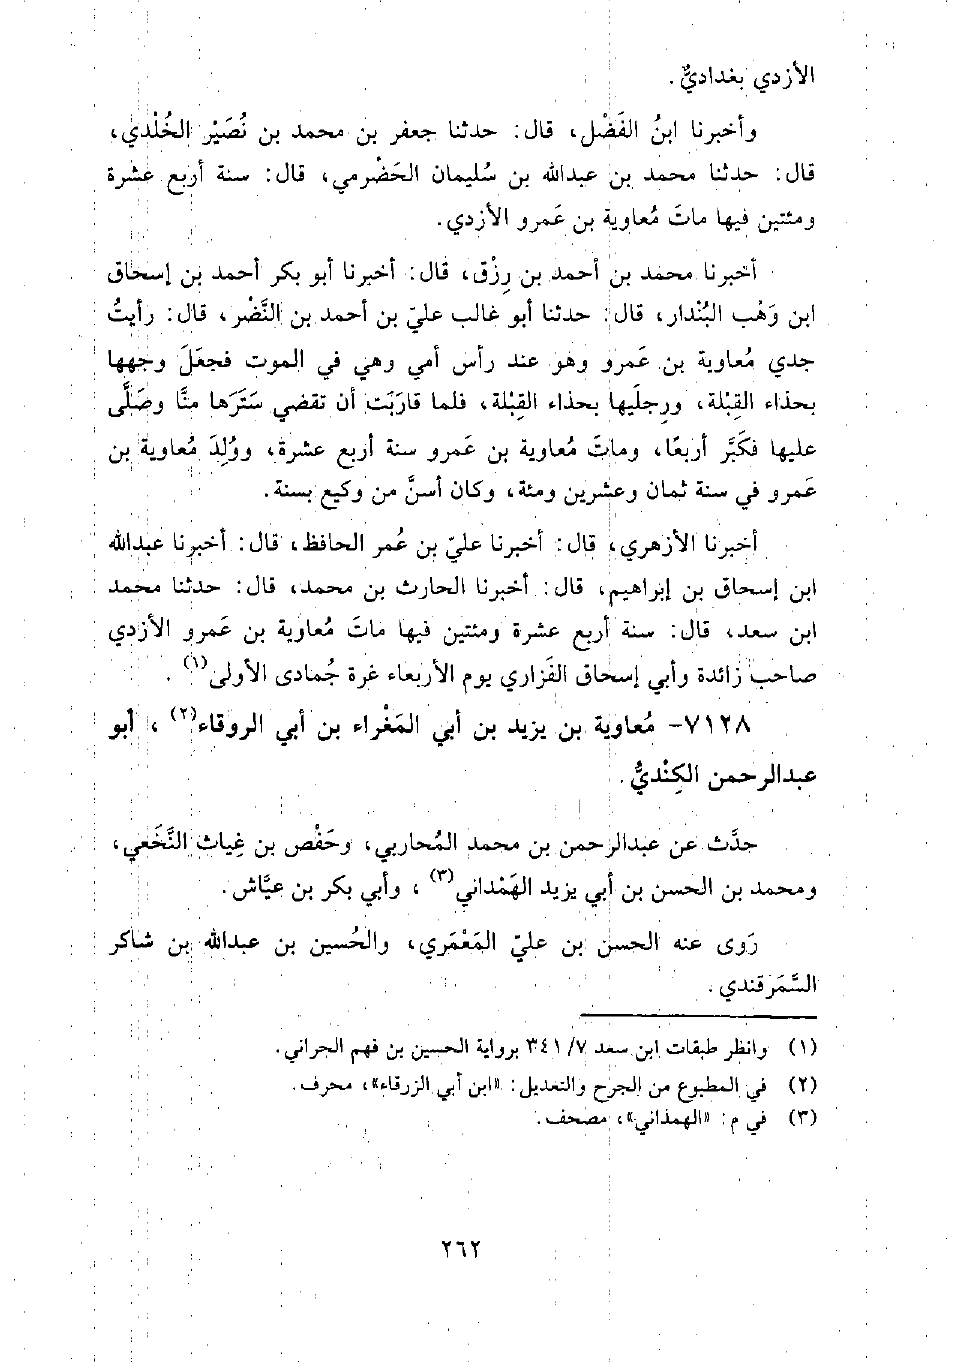 الأزدي بغداديٌّ .
وأخبرنا ابنُ الفَضْل، قال: حدثنا جعفر بن محمد بن نُصَيْر الخُلْدي،
قال: حدثنا محمد بن عبدالله بن سُليمان الحَضْرمي، قال: سنة أربع عشرة
ومئتين فيها ماتَ مُعاوية بن عَمرو الأزدي.
أخبرنا محمد بن أحمد بن رِزْق، قال: أخبرنا أبو بكر أحمد بن إسحاق
ابن وَهْب البُنْدار، قال: حدثنا أبو غالب عليّ بن أحمد بن النَّضْر، قال: رأيتُ
جدي مُعاوية بن عَمرو وهو عند رأس أمي وهي في الموت فجعَلَ وجهها
بحذاء القِبْلة، ورجليها بحذاء القِبْلة، فلما قارَبَت أن تقضي سَتَرَها منَّا وصَلَّى
عليها فكَبَّر أربعًا، وماتَ مُعاوية بن عَمرو سنة أربع عشرة، ووُلِدَ مُعاوية بن
عَمرو في سنة ثمان وعشرين ومئة، وكان أسنَّ من وكيع بسنة.
أخبرنا الأزهري، قال: أخبرنا عليّ بن عُمر الحافظ، قال: أخبرنا عبدالله
ابن إسحاق بن إبراهيم، قال: أخبرنا الحارث بن محمد، قال: حدثنا محمد
ابن سعد، قال: سنة أربع عشرة ومئتين فيها ماتَ مُعاوية بن عَمرو الأزدي
صاحب زائدة وأبي إسحاق الفَزاري يوم الأربعاء غرة جُمادى الأولى(١) .
٧١٢٨- مُعاوية بن يزيد بن أبي المَغْراء بن أبي الروقاء(٢) ، أبو
عبدالرحمن الكِنْديُّ.
حدَّث عن عبدالرحمن بن محمد المُحاربي، وحَفْص بن غِياث النَّخَعي،
ومحمد بن الحسن بن أبي يزيد الهَمْداني(٣) ، وأبي بكر بن عيَّاش.
رَوى عنه الحسن بن عليّ المَعْمَري، والحُسين بن عبدالله بن شاكر
السَّمَرقندي .
(١) وانظر طبقات ابن سعد ٧/ ٣٤١ برواية الحسين بن فهم الحراني.
(٢) في المطبوع من الجرح والتعديل: «ابن أبي الزرقاء»، محرف.
(٣) في م: «الهمذاني»، مصحف.
٢٦٢